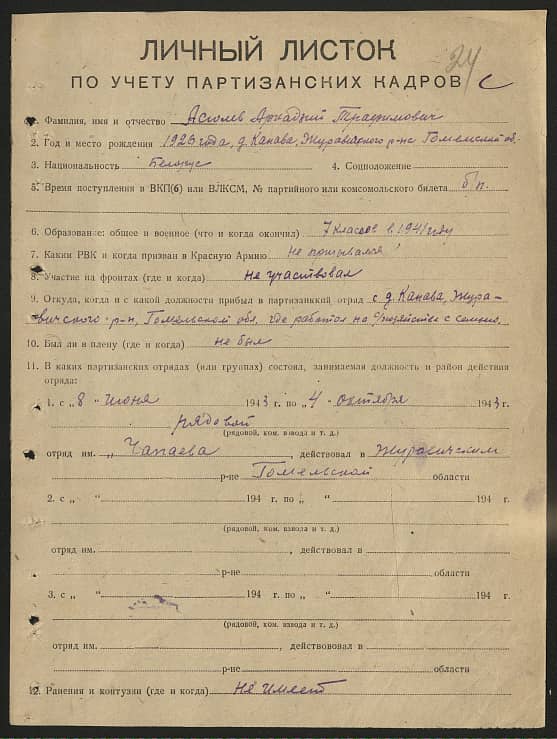 24
ЛИЧНЫЙ ЛИСТОК
ПО УЧЕТУ ПАРТИЗАНСКИХ КАДРОВ с
Фамилия, имя и отчество Аркадий Трафимович
2. Год и место рождения 1926 года, д. Канава, Журавичского р-на Гомельской об.
3. Национальность Белорус 4. Соцположение
5. Время поступления в ВКП(б) или ВЛКСМ, № партийного или комсомольского билета б/п.
6. Образование: общее и военное (что и когда окончил) 7 классов в 1941 году
7. Каким РВК и когда призван в Красную Армию не призывался
8. Участие на фронтах (где и когда) не участвовал
9. Откуда, когда и с какой должности прибыл в партизанский отряд с д. Канава, Жура-
вичского р-н, Гомельской обл. где работал на с/хозяйстве с семьей.
10. Был ли в плену (где и когда) не был
11. В каких партизанских отрядах (или группах) состоял, занимаемая должность и район действия
отряда:
1. с „8 - июня 1943 г. по „4 - октября 1943 г.
рядовой
(рядовой, ком. взвода и т. д.)
отряд им. „Чапаева действовал в Журавичским
р-не Гомельской области
2. с „ “ 194 г. по „ “ 194 г.
(рядовой, ком. взвода и т. д.)
отряд им. , действовал в
р-не области
3. с „ “ 194 г. по „ “ 194 г.
(рядовой, ком. взвода и т. д.)
отряд им. , действововал в
р-не области
12. Ранения и контузии (где и когда) не имеет